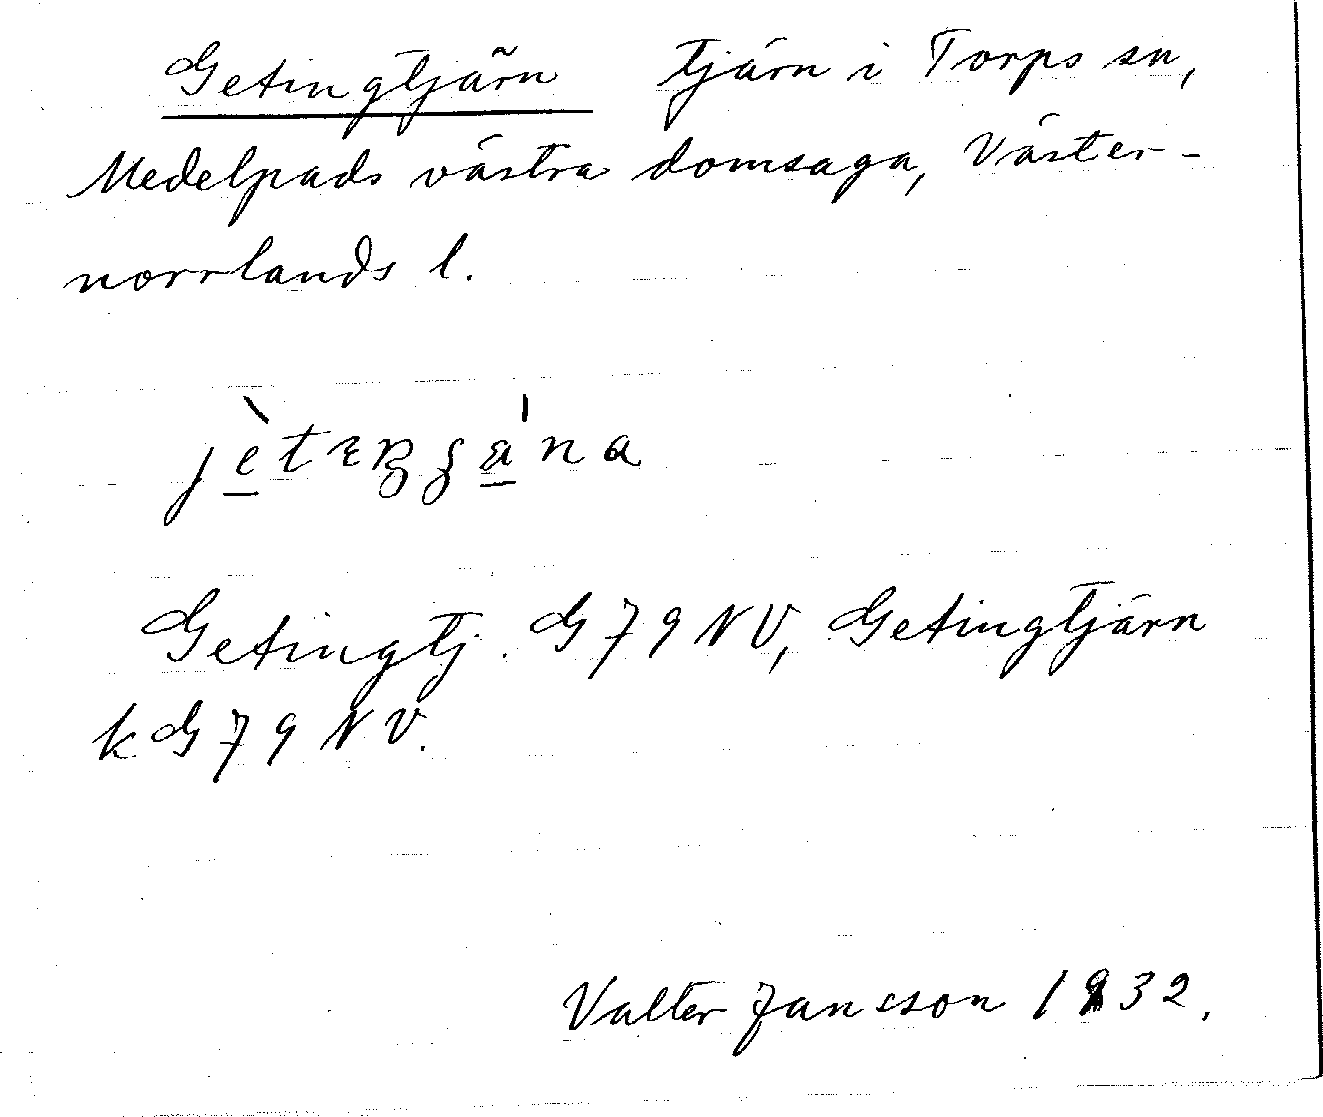 Getingtjärn tjärn i Torps sn,
Medelpads västra domsaga, Väster-
norrlands l.
Getingtj. G79NV, Getingtjärn
kG79NV.
Valter Jansson 1932.